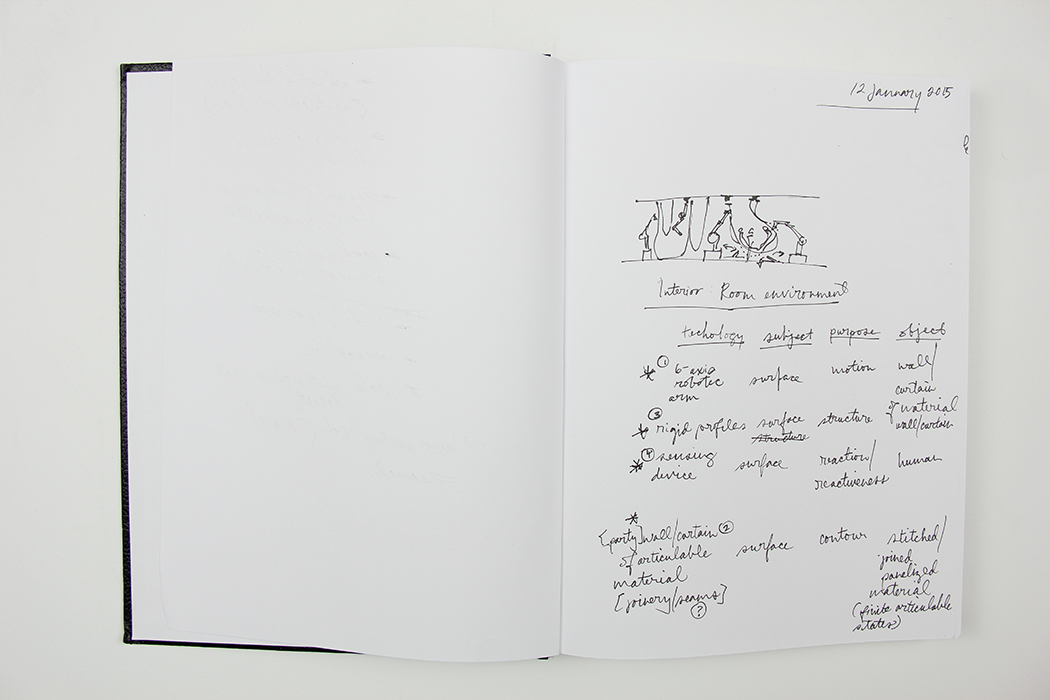 12 January 2015
Interior Room environment
techology subject purpose object
* ① 6-axis robotic arm surface motion wall/ curtain of material
* ③ rigid profiles surface structure structure wall/curtain
* ④ sensing device surface reaction/ reactiveness human
*
[party] wall/curtain ② surface contour stitched/
of articulable joined
material panelized
[joinery/seams] material
? (finite articulable
states)